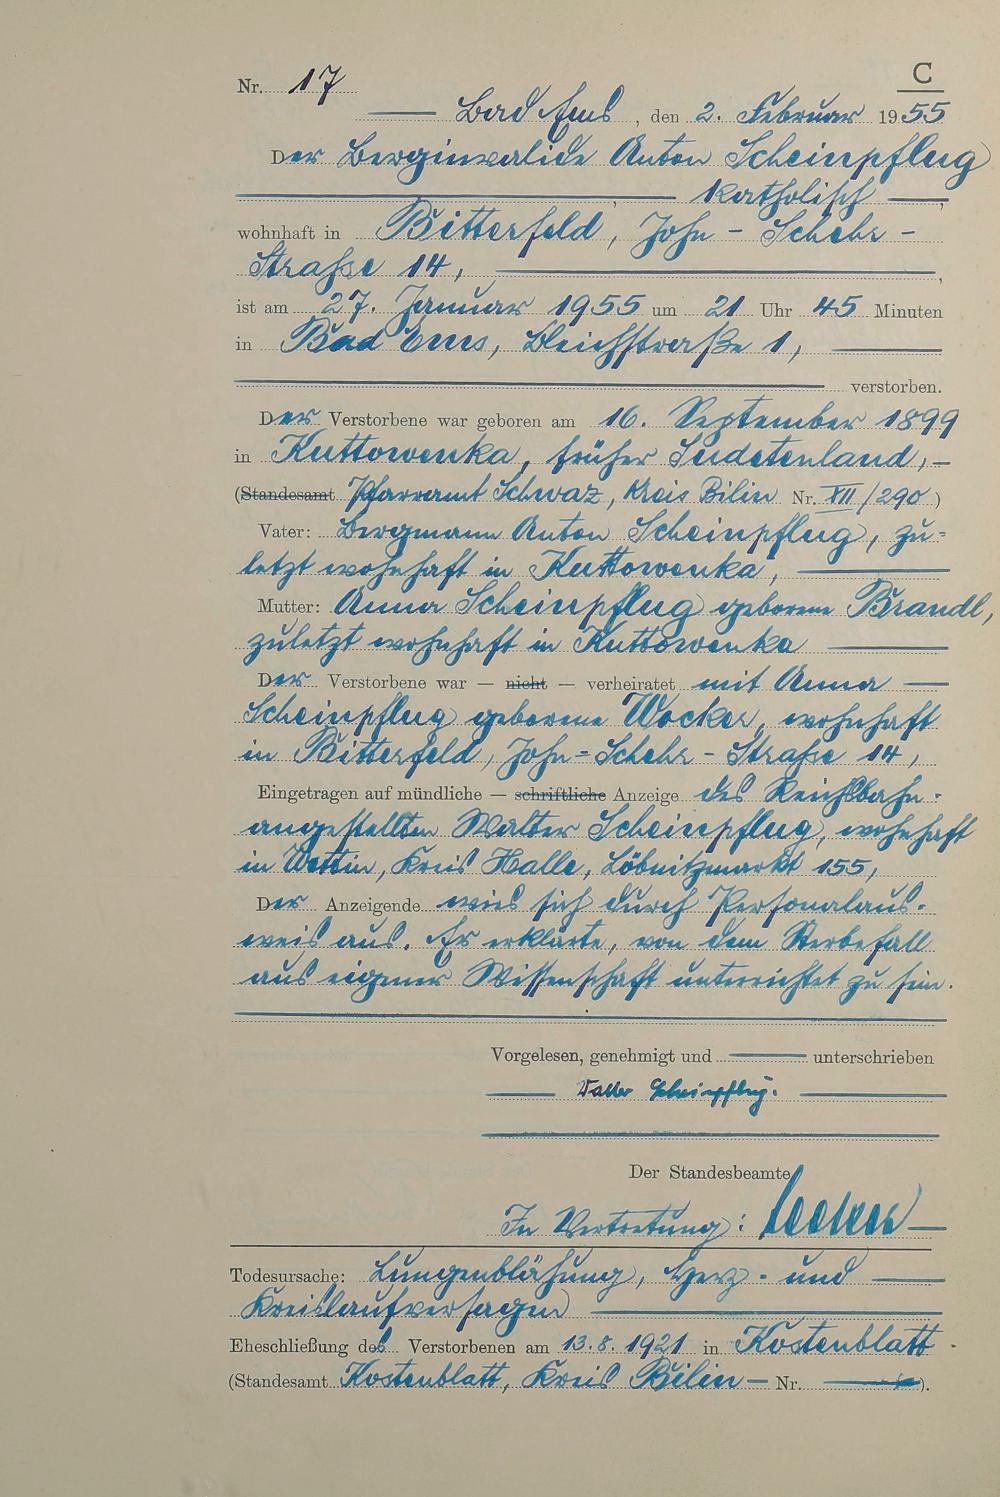 C
Nr. 17
Bad Ems, den 2. Februar 1955
Der Berginvalide Anton Scheinpflug
, katholisch,
wohnhaft in Bitterfeld, John-Schehr-
Straße 14,
ist am 27. Januar 1955 um 21 Uhr 45 Minuten
in Bad Ems, Bleichstraße 1,
verstorben.
Der Verstorbene war geboren am 16. September 1899
in Kuttowenka, früher Sudetenland, –
(Standesamt Pfarramt Schwaz, Kreis Bilin Nr. XII/290)
Vater: Bergmann Anton Scheinpflug, zu-
letzt wohnhaft in Kuttowenka,
Mutter: Anna Scheinpflug geborene Brandl,
zuletzt wohnhaft in Kuttowenka
Der Verstorbene war — nicht — verheiratet mit Anna
Scheinpflug geborene Wocker, wohnhaft
in Bitterfeld, John-Schehr-Straße 14,
Eingetragen auf mündliche — schriftliche Anzeige des Reichsbahn-
angestellten Walter Scheinpflug, wohnhaft
in Wettin, Kreis Halle, Löbnitzmarkt 155,
Der Anzeigende wies sich durch Personalaus-
weis aus. Er erklärte, von dem Sterbefall
aus eigener Wissenschaft unterrichtet zu sein.
Vorgelesen, genehmigt und unterschrieben
Walter Scheinpflug.
Der Standesbeamte
In Vertretung:
Todesursache: Lungenblähung, Herz- und
Kreislaufversagen
Eheschließung des Verstorbenen am 13.8.1921 in Kostenblatt
(Standesamt Kostenblatt, Kreis Bilin — Nr. ).